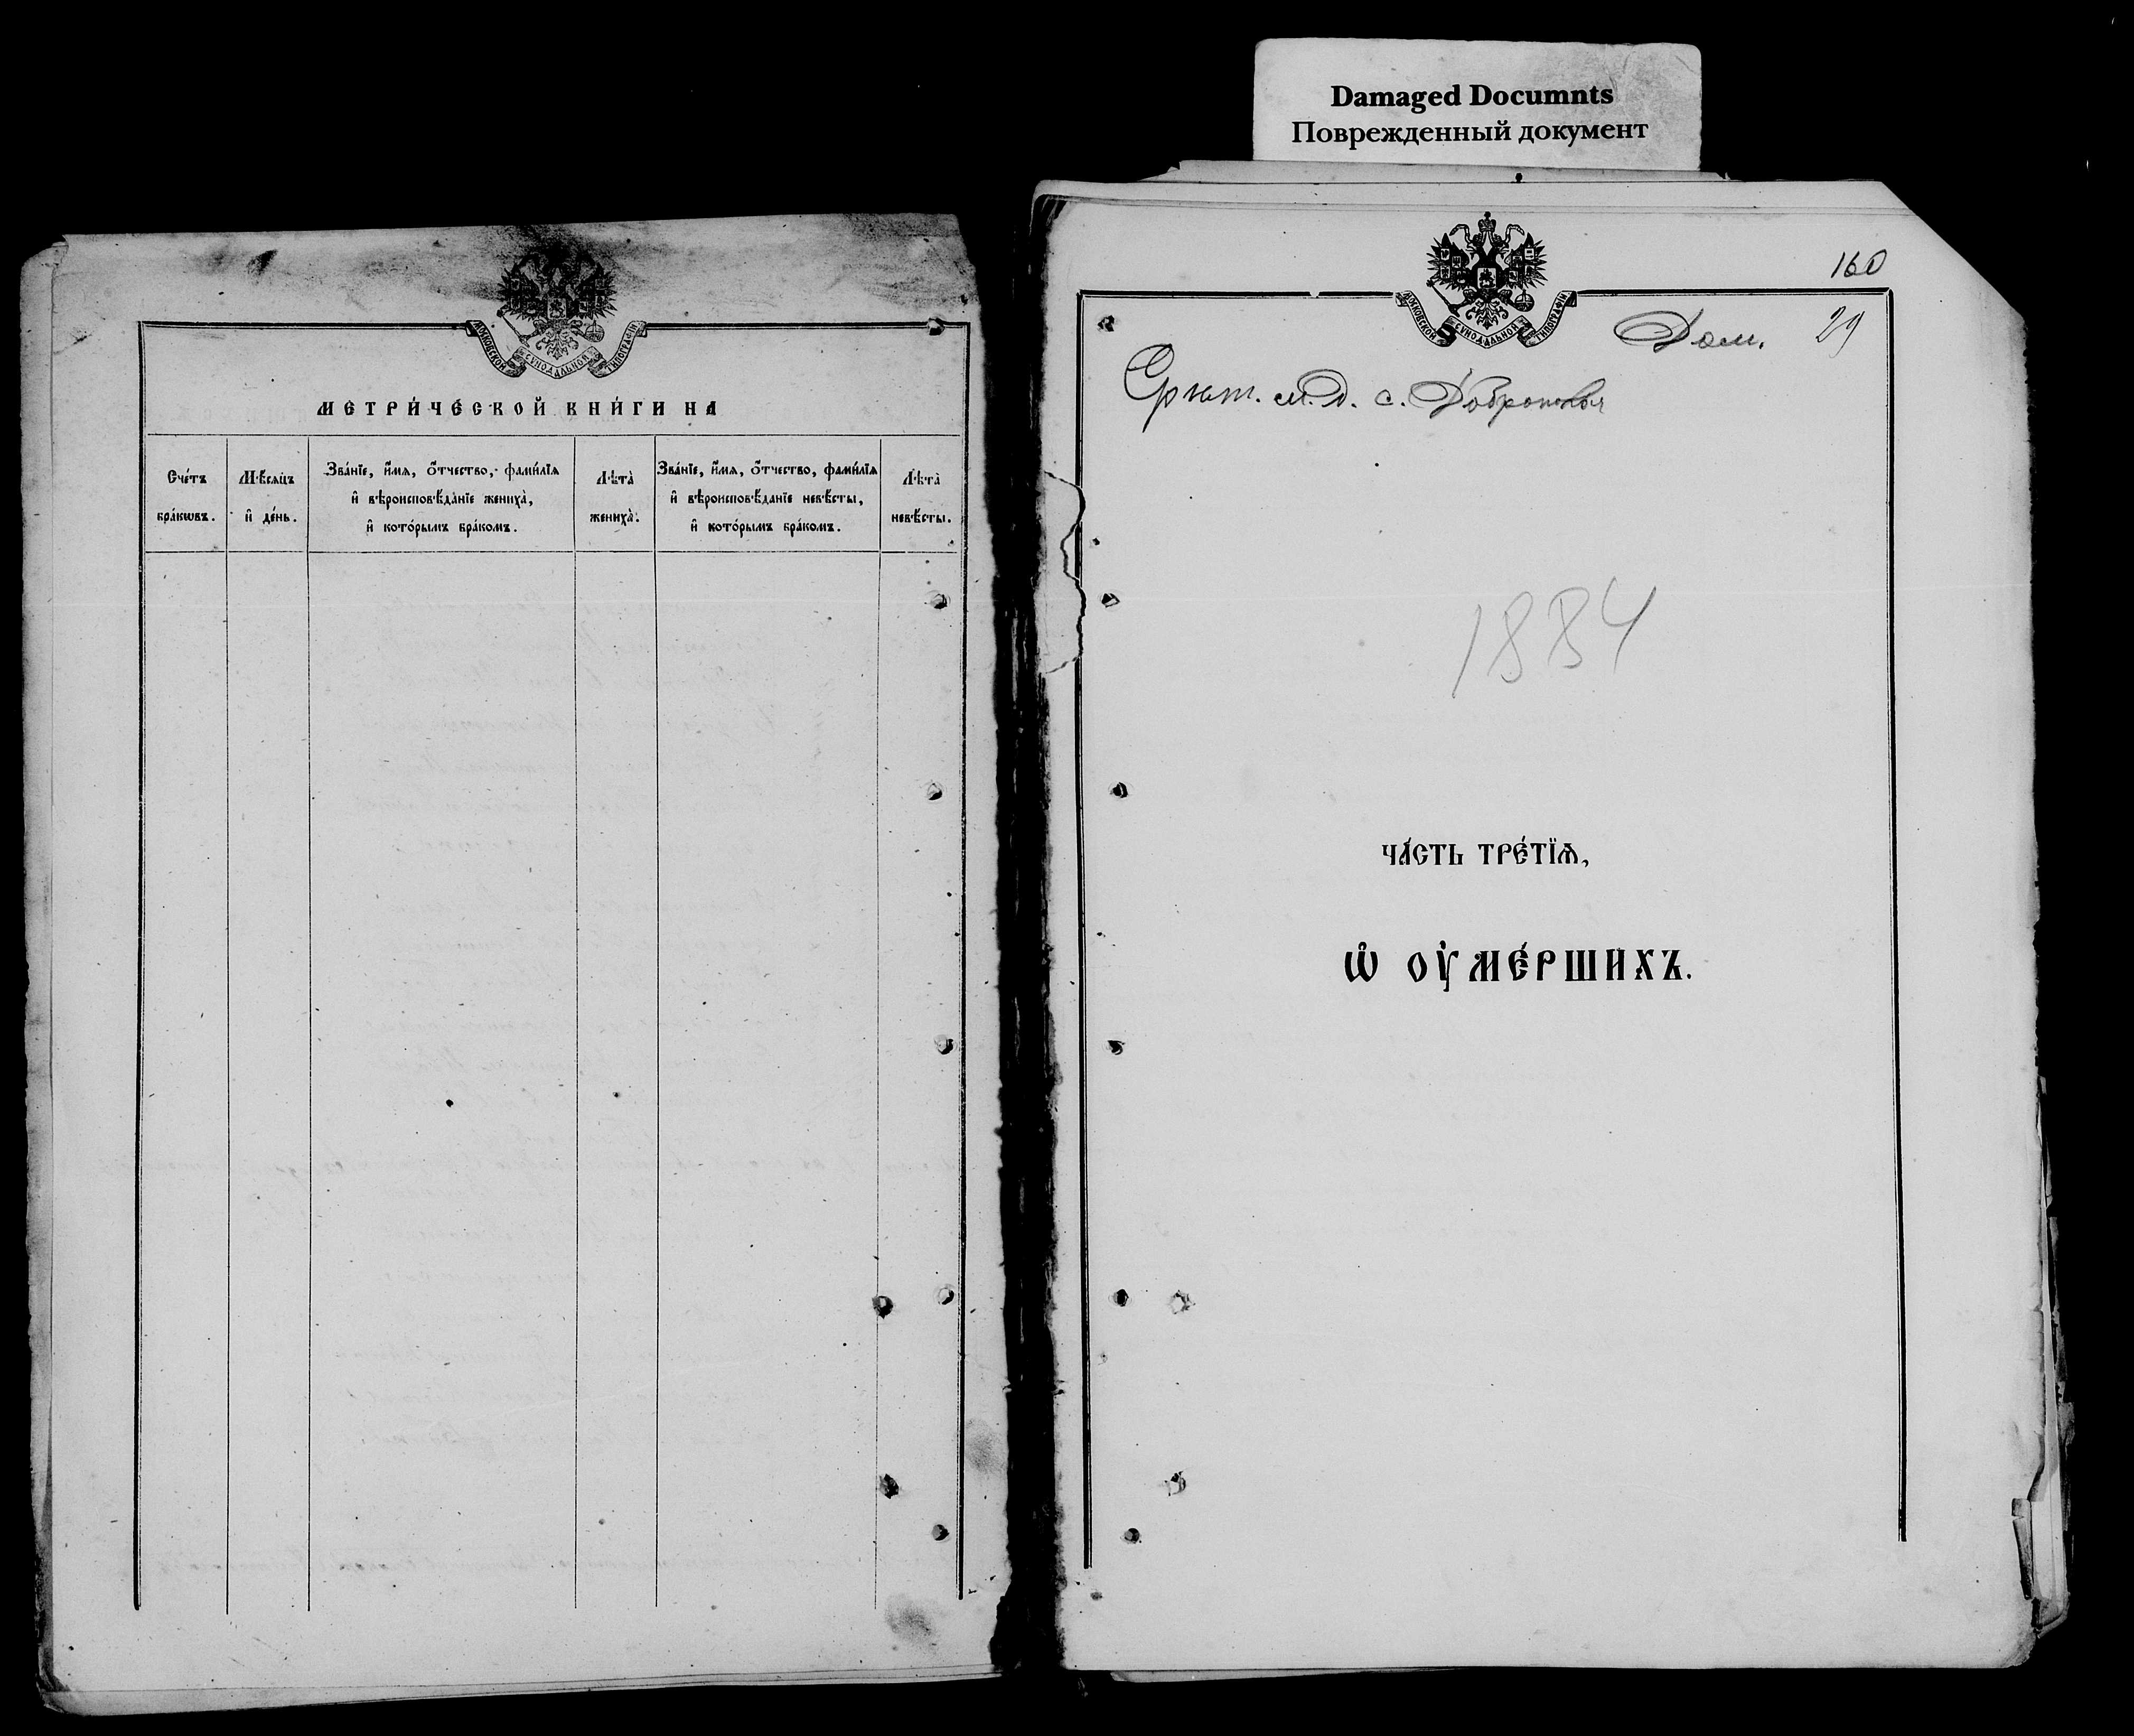 Damaged Documnts
Поврежденный документ
МОСКОВСКОЙ СѴНОДАЛЬНОЙ ТИПОГРАФІИ
МЕТРИ́ЧЕСКОЙ КНИ́ГИ НА
Сче́тъ бра́кωвъ.
Мѣ́сѧцъ и҆ де́нь.
Зва́нїе, и҆́мѧ, ѻ҆́тчество, фами́лїѧ
и҆ вѣроисповѣ́данїе жениха̀,
и҆ кото́рымъ бра́комъ.
Лѣта̀ жениха̀.
Зва́нїе, и҆́мѧ, ѻ҆́тчество, фами́лїѧ
и҆ вѣроисповѣ́данїе невѣ́сты,
и҆ кото́рымъ бра́комъ.
Лѣта̀ невѣ́сты.
160
МОСКОВСКОЙ СѴНОДАЛЬНОЙ ТИПОГРАФІИ
Дом. 29
с.
1884
ЧА́СТЬ ТРЕ́ТЇѦ,
Ѽ ОУ҆МЕ́РШИХЪ.